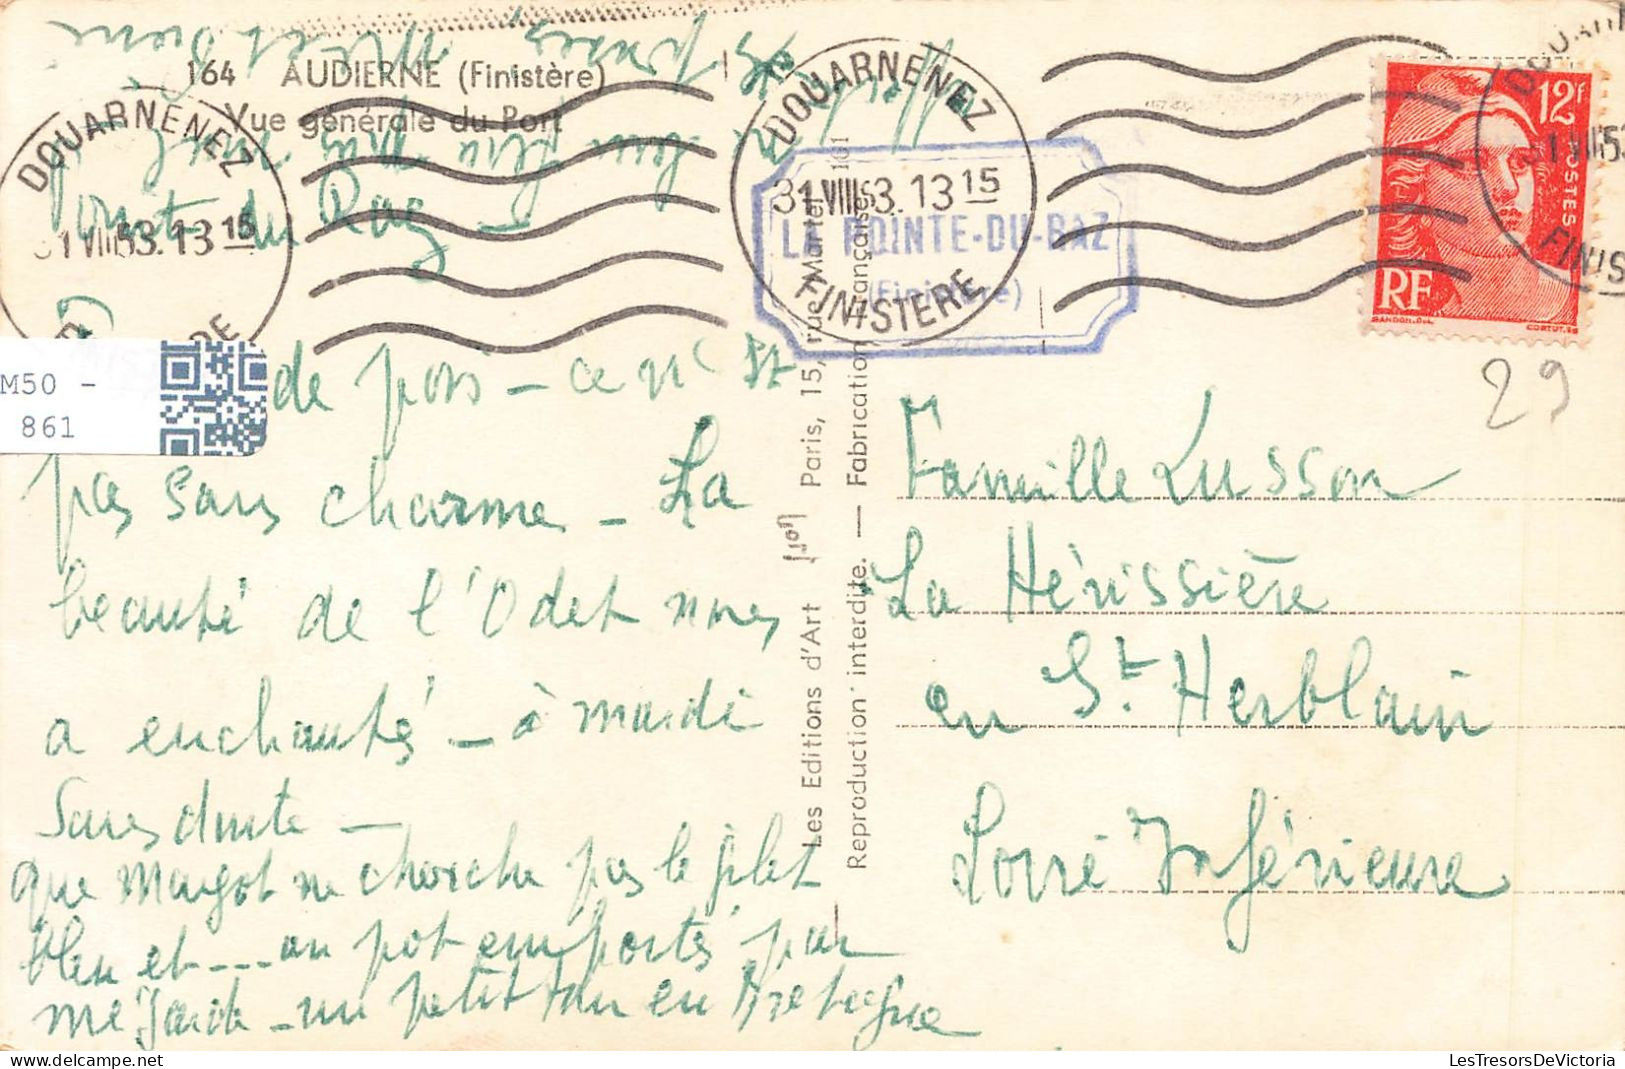 164 AUDIERNE (Finistère)
Vue générale du Port
DOUARNENEZ
31 VIII 53. 13 15
DOUARNENEZ
31 VIII 53. 13 15
FINISTERE
LA POINTE-DU-RAZ
(Finistère)
DOUARNENEZ
FINISTERE
12F
POSTES
RF
GANDON.DEL.
CORTOT.SC
29
M50 -
861
pointe du Raz
de pois - ce n'est
pas sans charme - La
beauté de l'Odet nous
a enchantés - à mardi
Sans doute -
que Margot ne cherche pas le gilet
bleu et --- un pot emportés par
me Jacob - un petit tour en Bretagne
Les Editions d'Art Yvon Paris, 15, rue Martel
Reproduction interdite. — Fabrication Française
Famille Lusson
La Hérissière
en St. Herblain
Loire Inférieure
LesTresorsDeVictoria.com